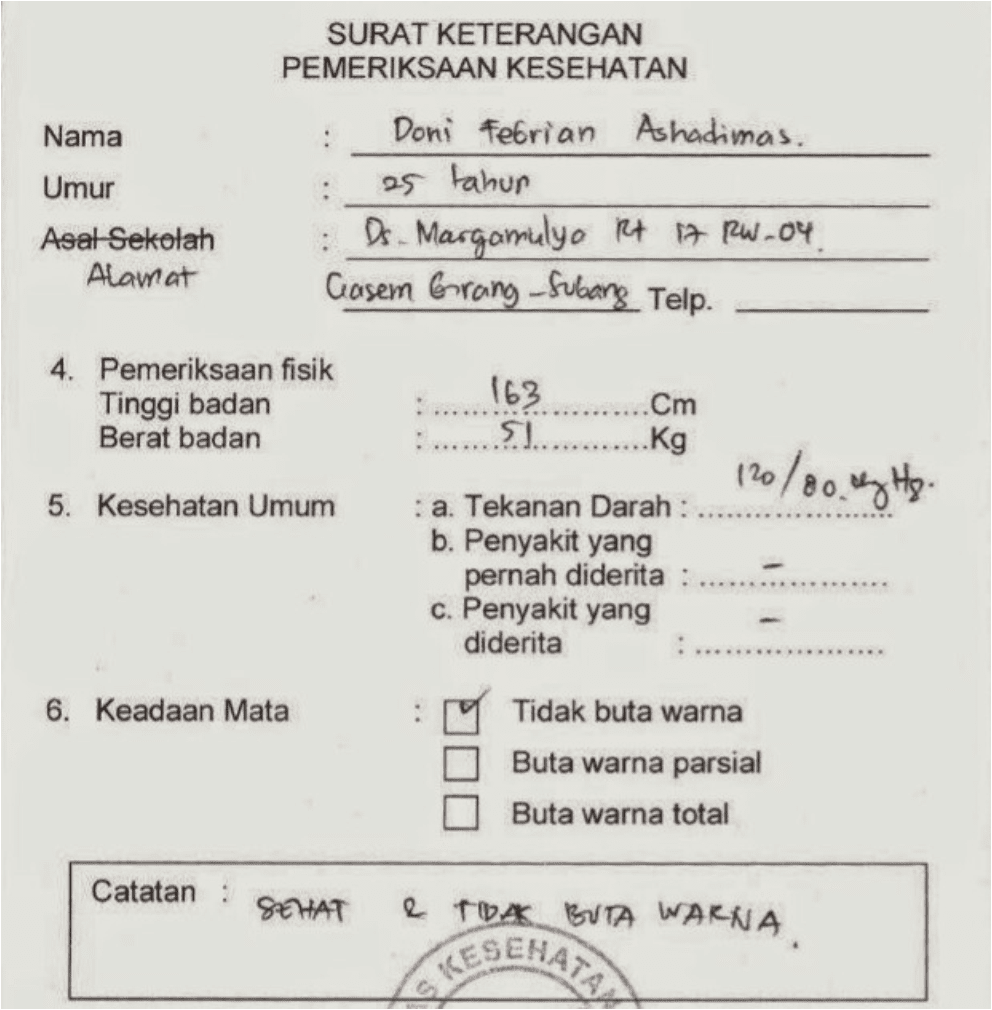 SURAT KETERANGAN
PEMERIKSAAN KESEHATAN
Nama : Doni Febrian Ashadimas.
Umur : 25 tahun
Asal Sekolah : Ds. Margamulyo Rt 17 RW-04.
Alamat
Telp.
4. Pemeriksaan fisik
Tinggi badan : 163 Cm
Berat badan : 51 Kg
5. Kesehatan Umum : a. Tekanan Darah : 120/80. mg Hg.
b. Penyakit yang
pernah diderita : -
c. Penyakit yang
diderita : -
6. Keadaan Mata : Tidak buta warna
Buta warna parsial
Buta warna total
Catatan : SEHAT & TIDAK BUTA WARNA.
KESEHATAN